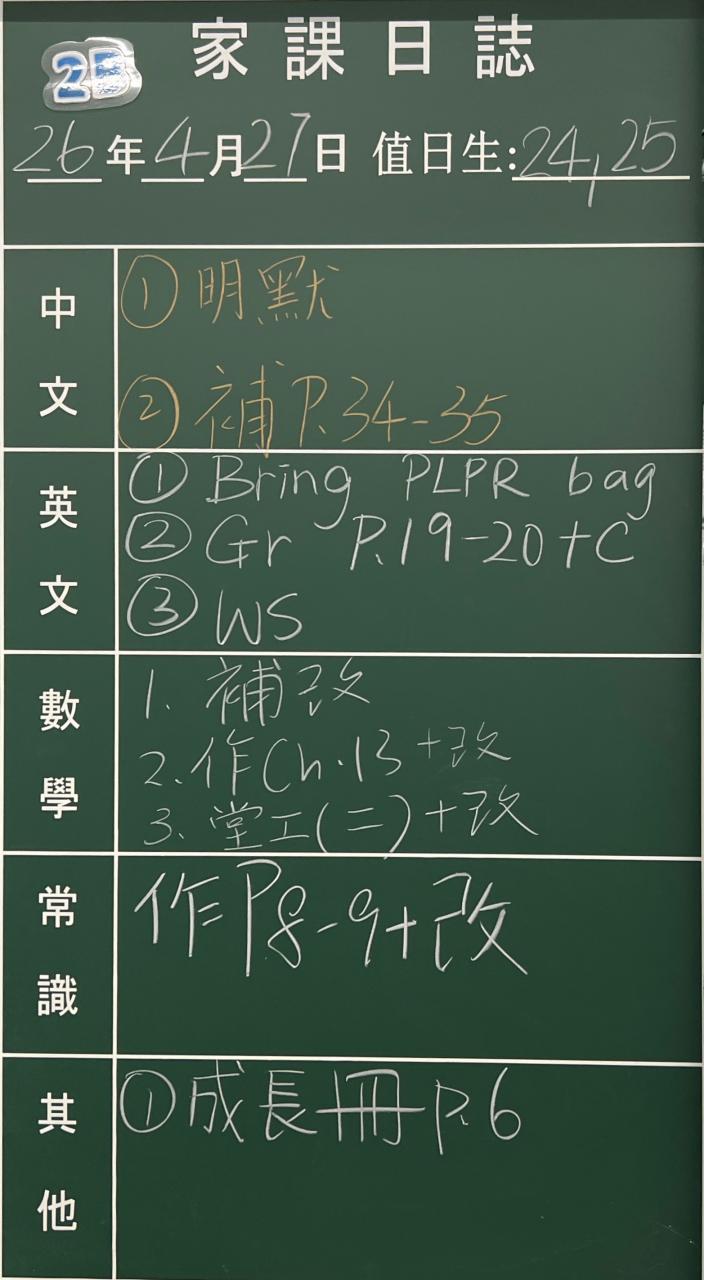 家課日誌
2B
26年4月27日 值日生:24,25
中文
① 明默
② 補P.34-35
英文
① Bring PLPR bag
② Gr P.19-20+C
③ WS
數學
1. 補改
2. 作Ch.13+改
3. 堂工(二)+改
常識
作P8-9+改
其他
① 成長冊P.6